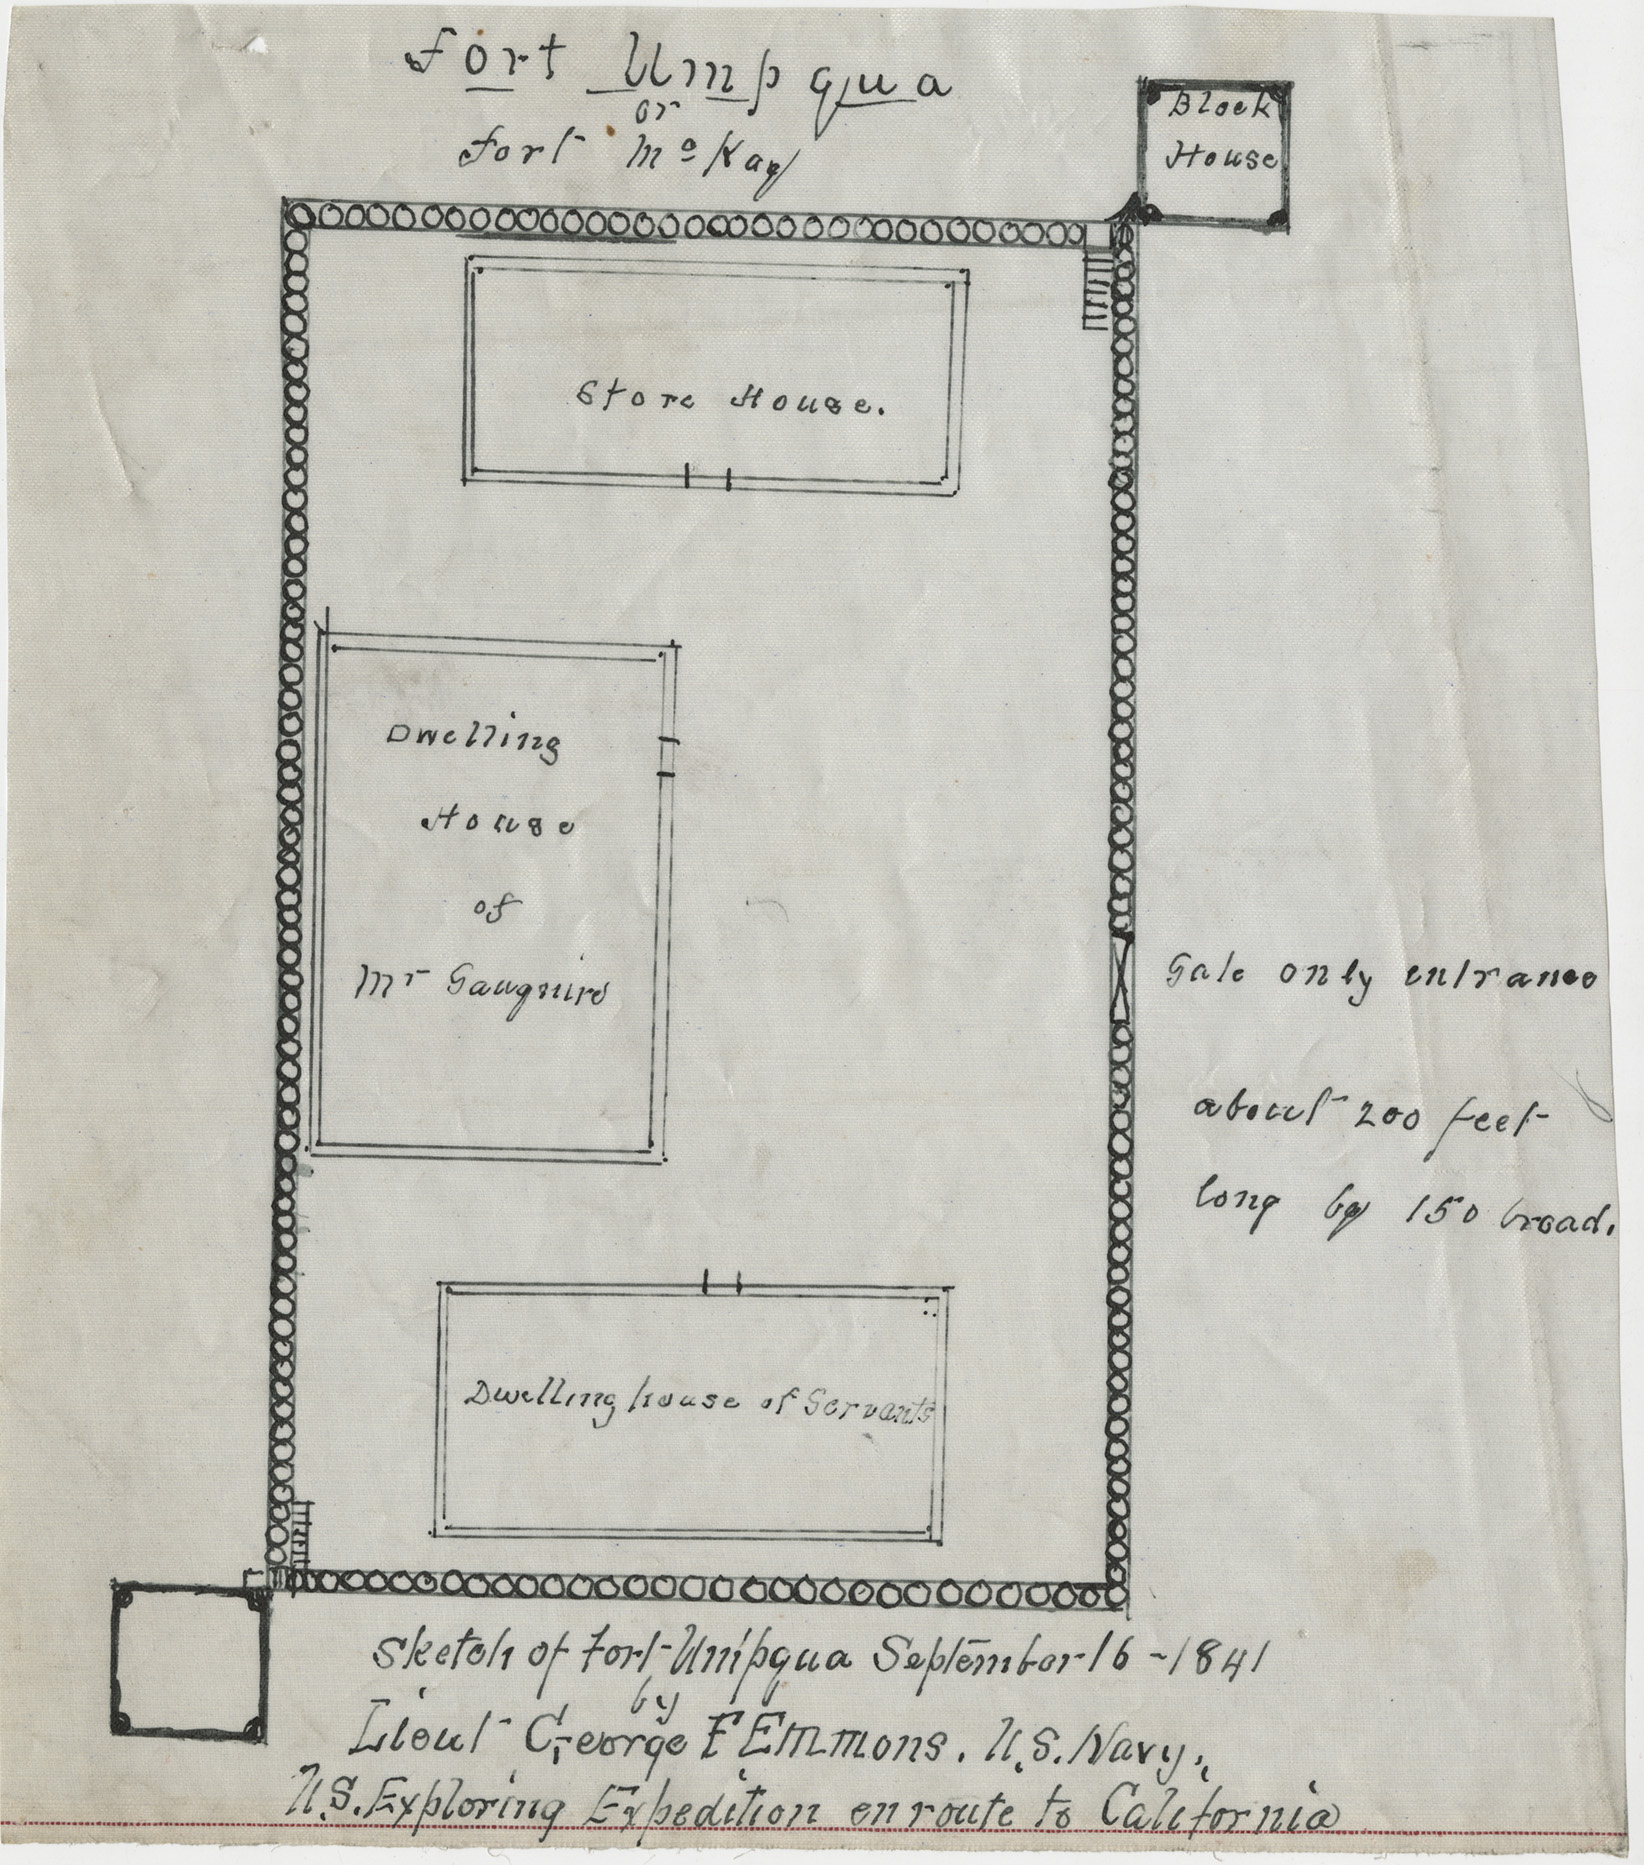 Fort Umpqua
or
Fort Mc Kay
Block
House
Store House.
Dwelling
House
of
Mr
Gate only entrance
about 200 feet
long by 150 broad.
Dwelling house of Servants
Sketch of Fort Umpqua September 16 - 1841
by
Lieut George F Emmons. U.S. Navy.
U.S. Exploring Expedition en route to California